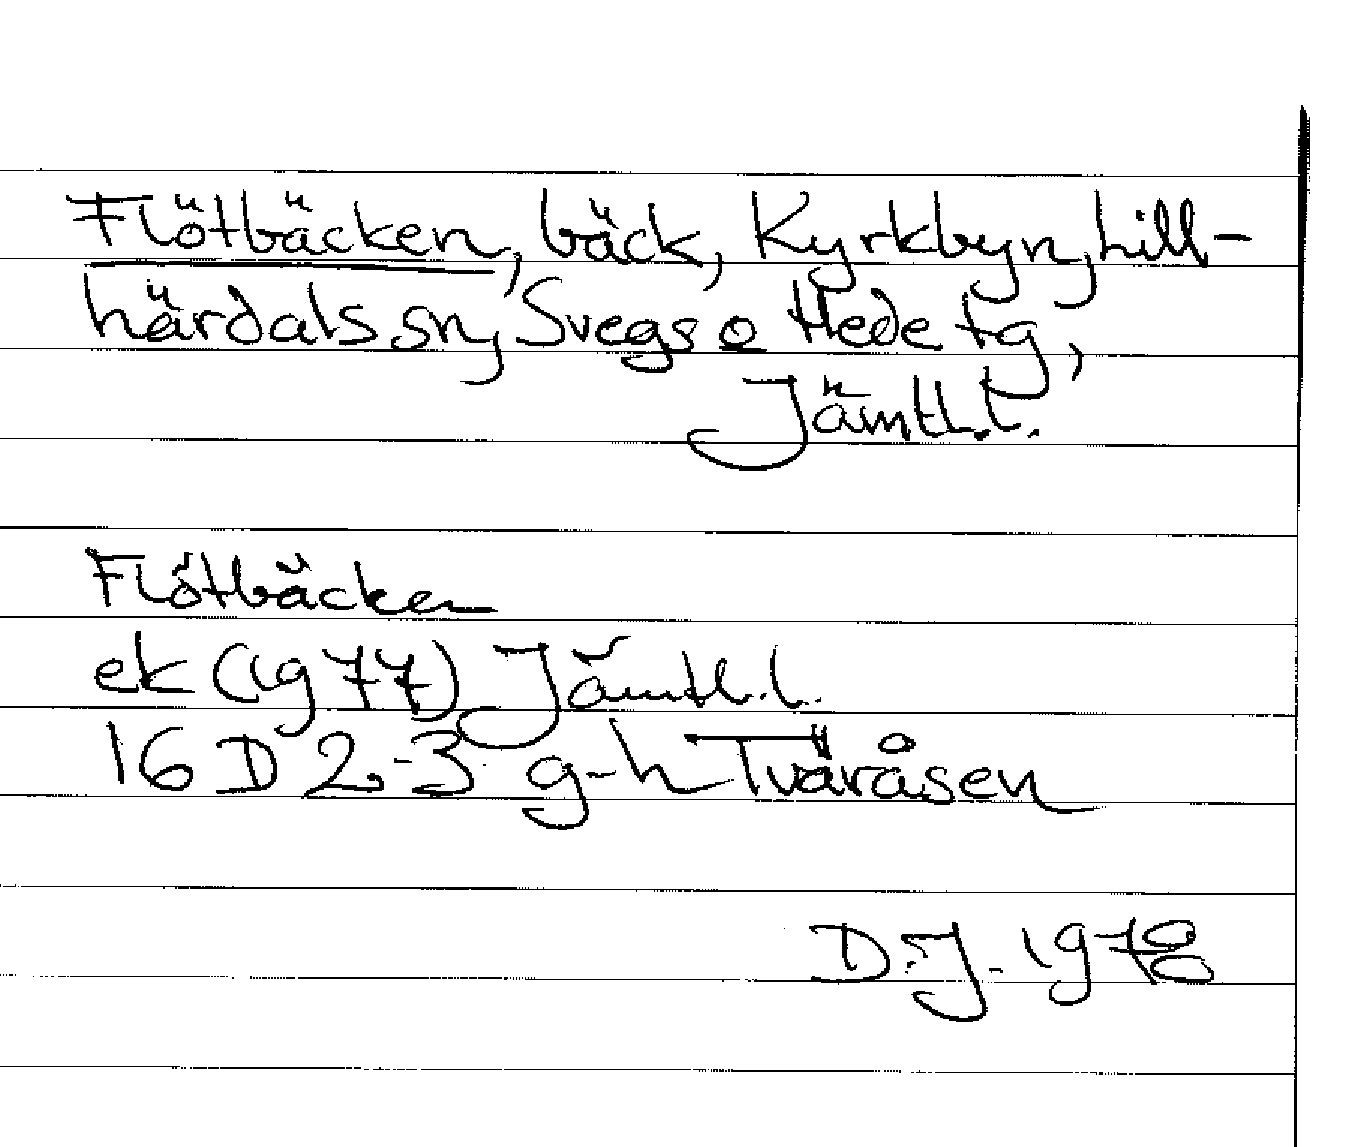 Flötbäcken, bäck, Kyrkbyn, Lill-
härdals sn, Svegs o Hede tg,
Jämtl.l.
Flötbäcken
ek (1977) Jämtl.l.
16 D 2-3 g-h Tväråsen
D.J. 1978